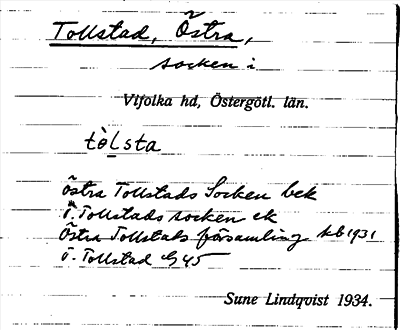 Tollstad, Östra,
socken i
Vifolka hd, Östergötl. län.
tòlsta
Östra Tollstads Socken bek
Ö. Tollstads socken ek
Östra Tollstads församling kb 1931
Ö. Tollstad G 45
Sune Lindqvist 1934.